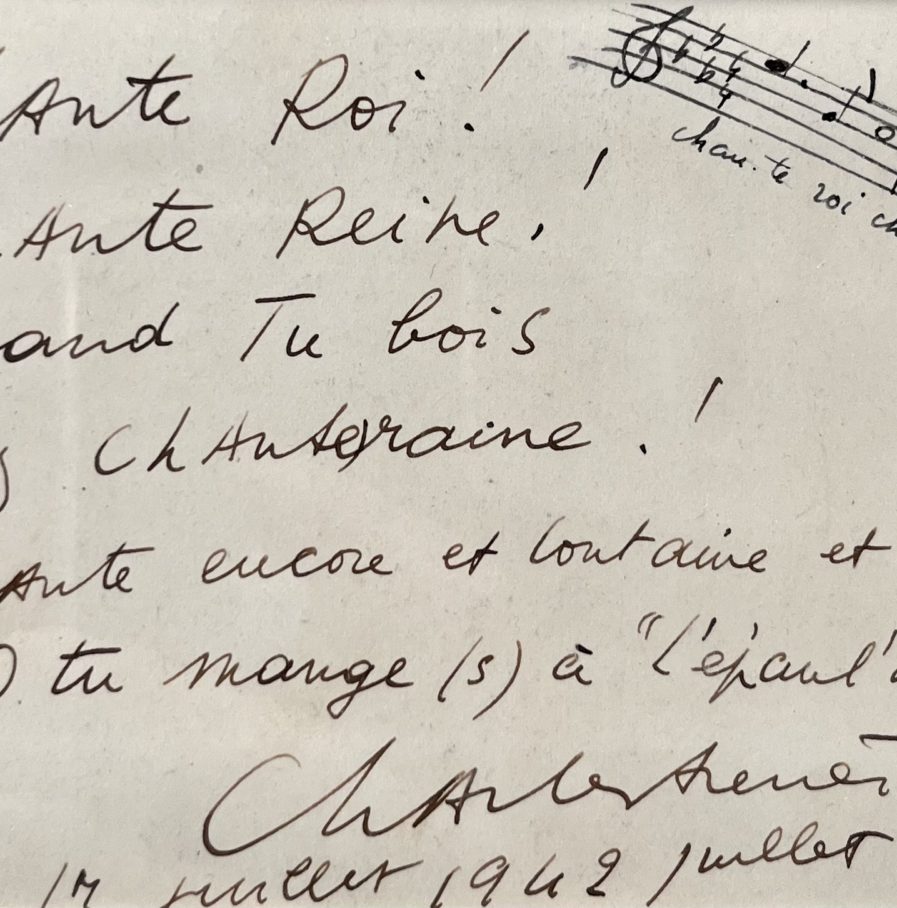 Ante Roi !
Ante Reine !
and Tu bois
Chanteraine !
Ante encore et lontaine et
) tu mange (s) à "l'épaul'
Charles Trenet
17 juillet 1942 juillet
chan.te roi ch